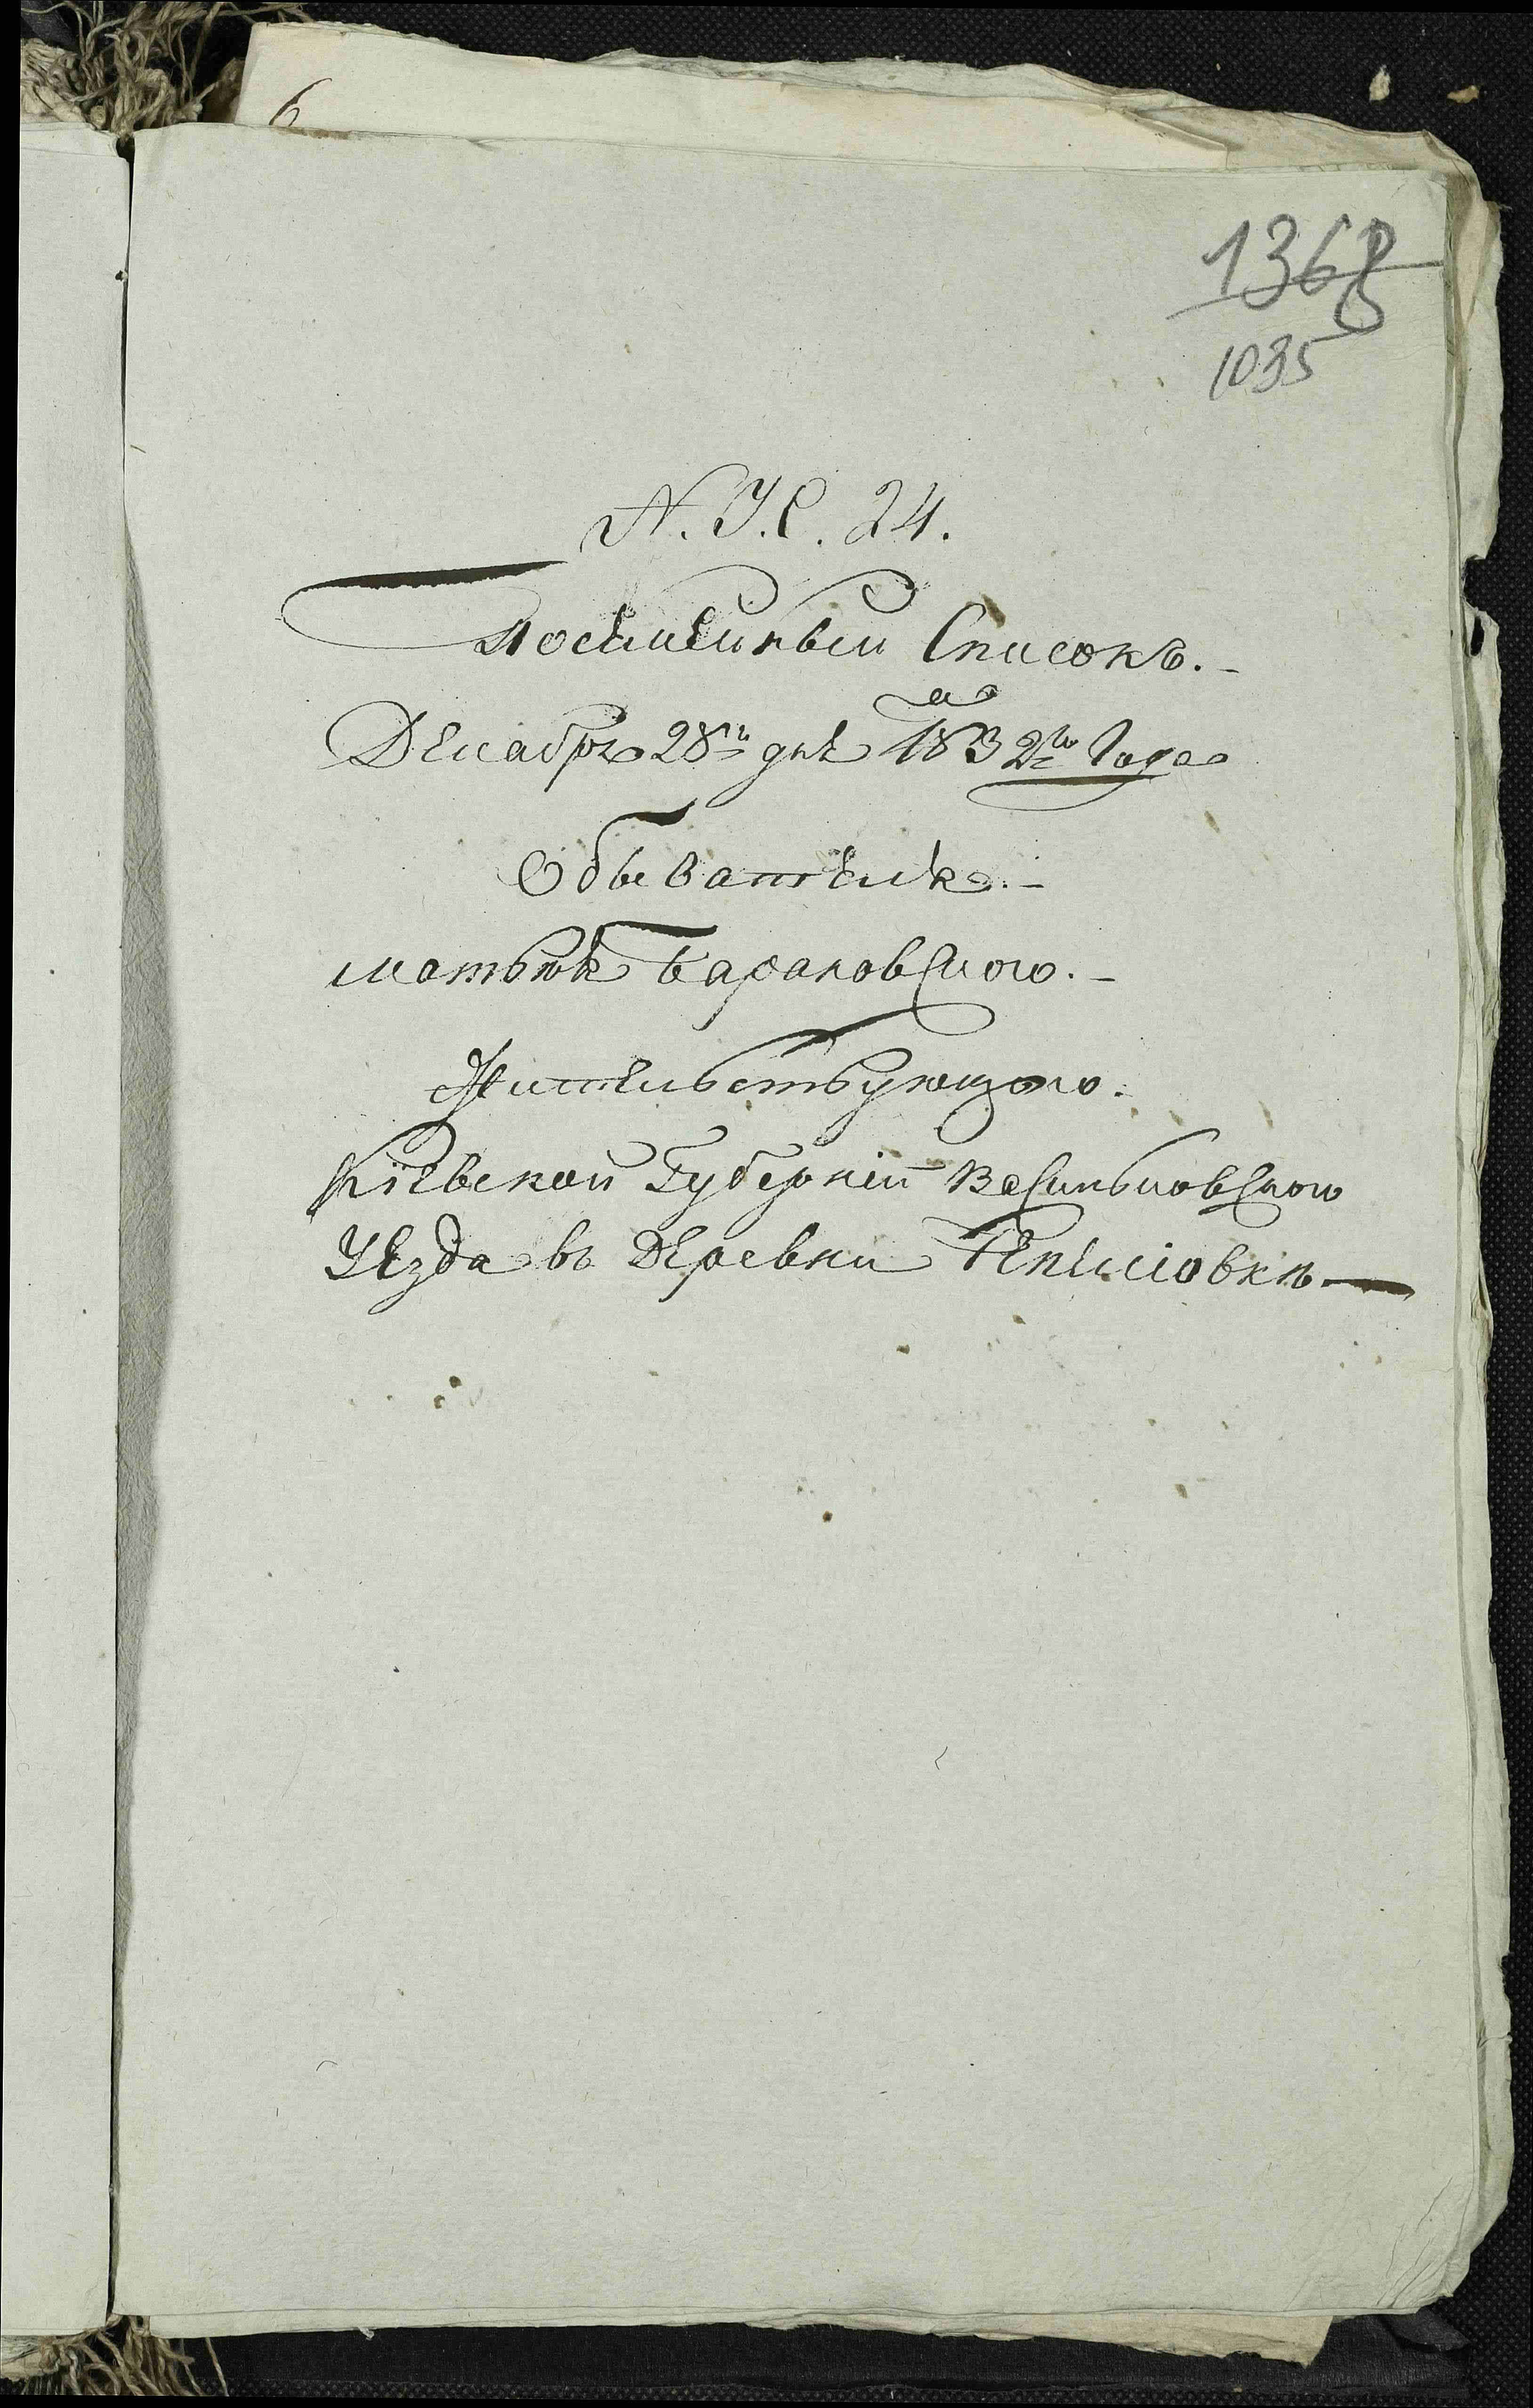 6
1368
1035
N. У.С. 24.
Посемейный Списокъ.
Декабря 28го дня 1832го Года
Обывателя.
матвѣя Барановского.
Жительствующого.
Кіевской Губерніи Васильковского
Уезда въ Деревни